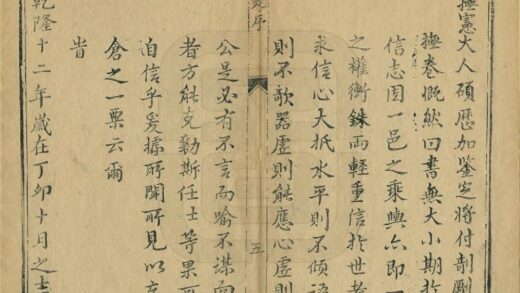 撫憲大人碩歷加鉴定將付剞劂
撫卷慨然曰書無大小期於
信志固一邑之乘輿亦即一
之權衡銖两輕重信於世者
求信心大抵水平則不傾
則不欹器虛則能應心虛則
公是必有不言而喻不謀而
者方能克勷斯任士等果
洎信乎爰據所聞所見以
倉之一粟云爾
旹
乾隆十二年歲在丁卯十月之
序
五